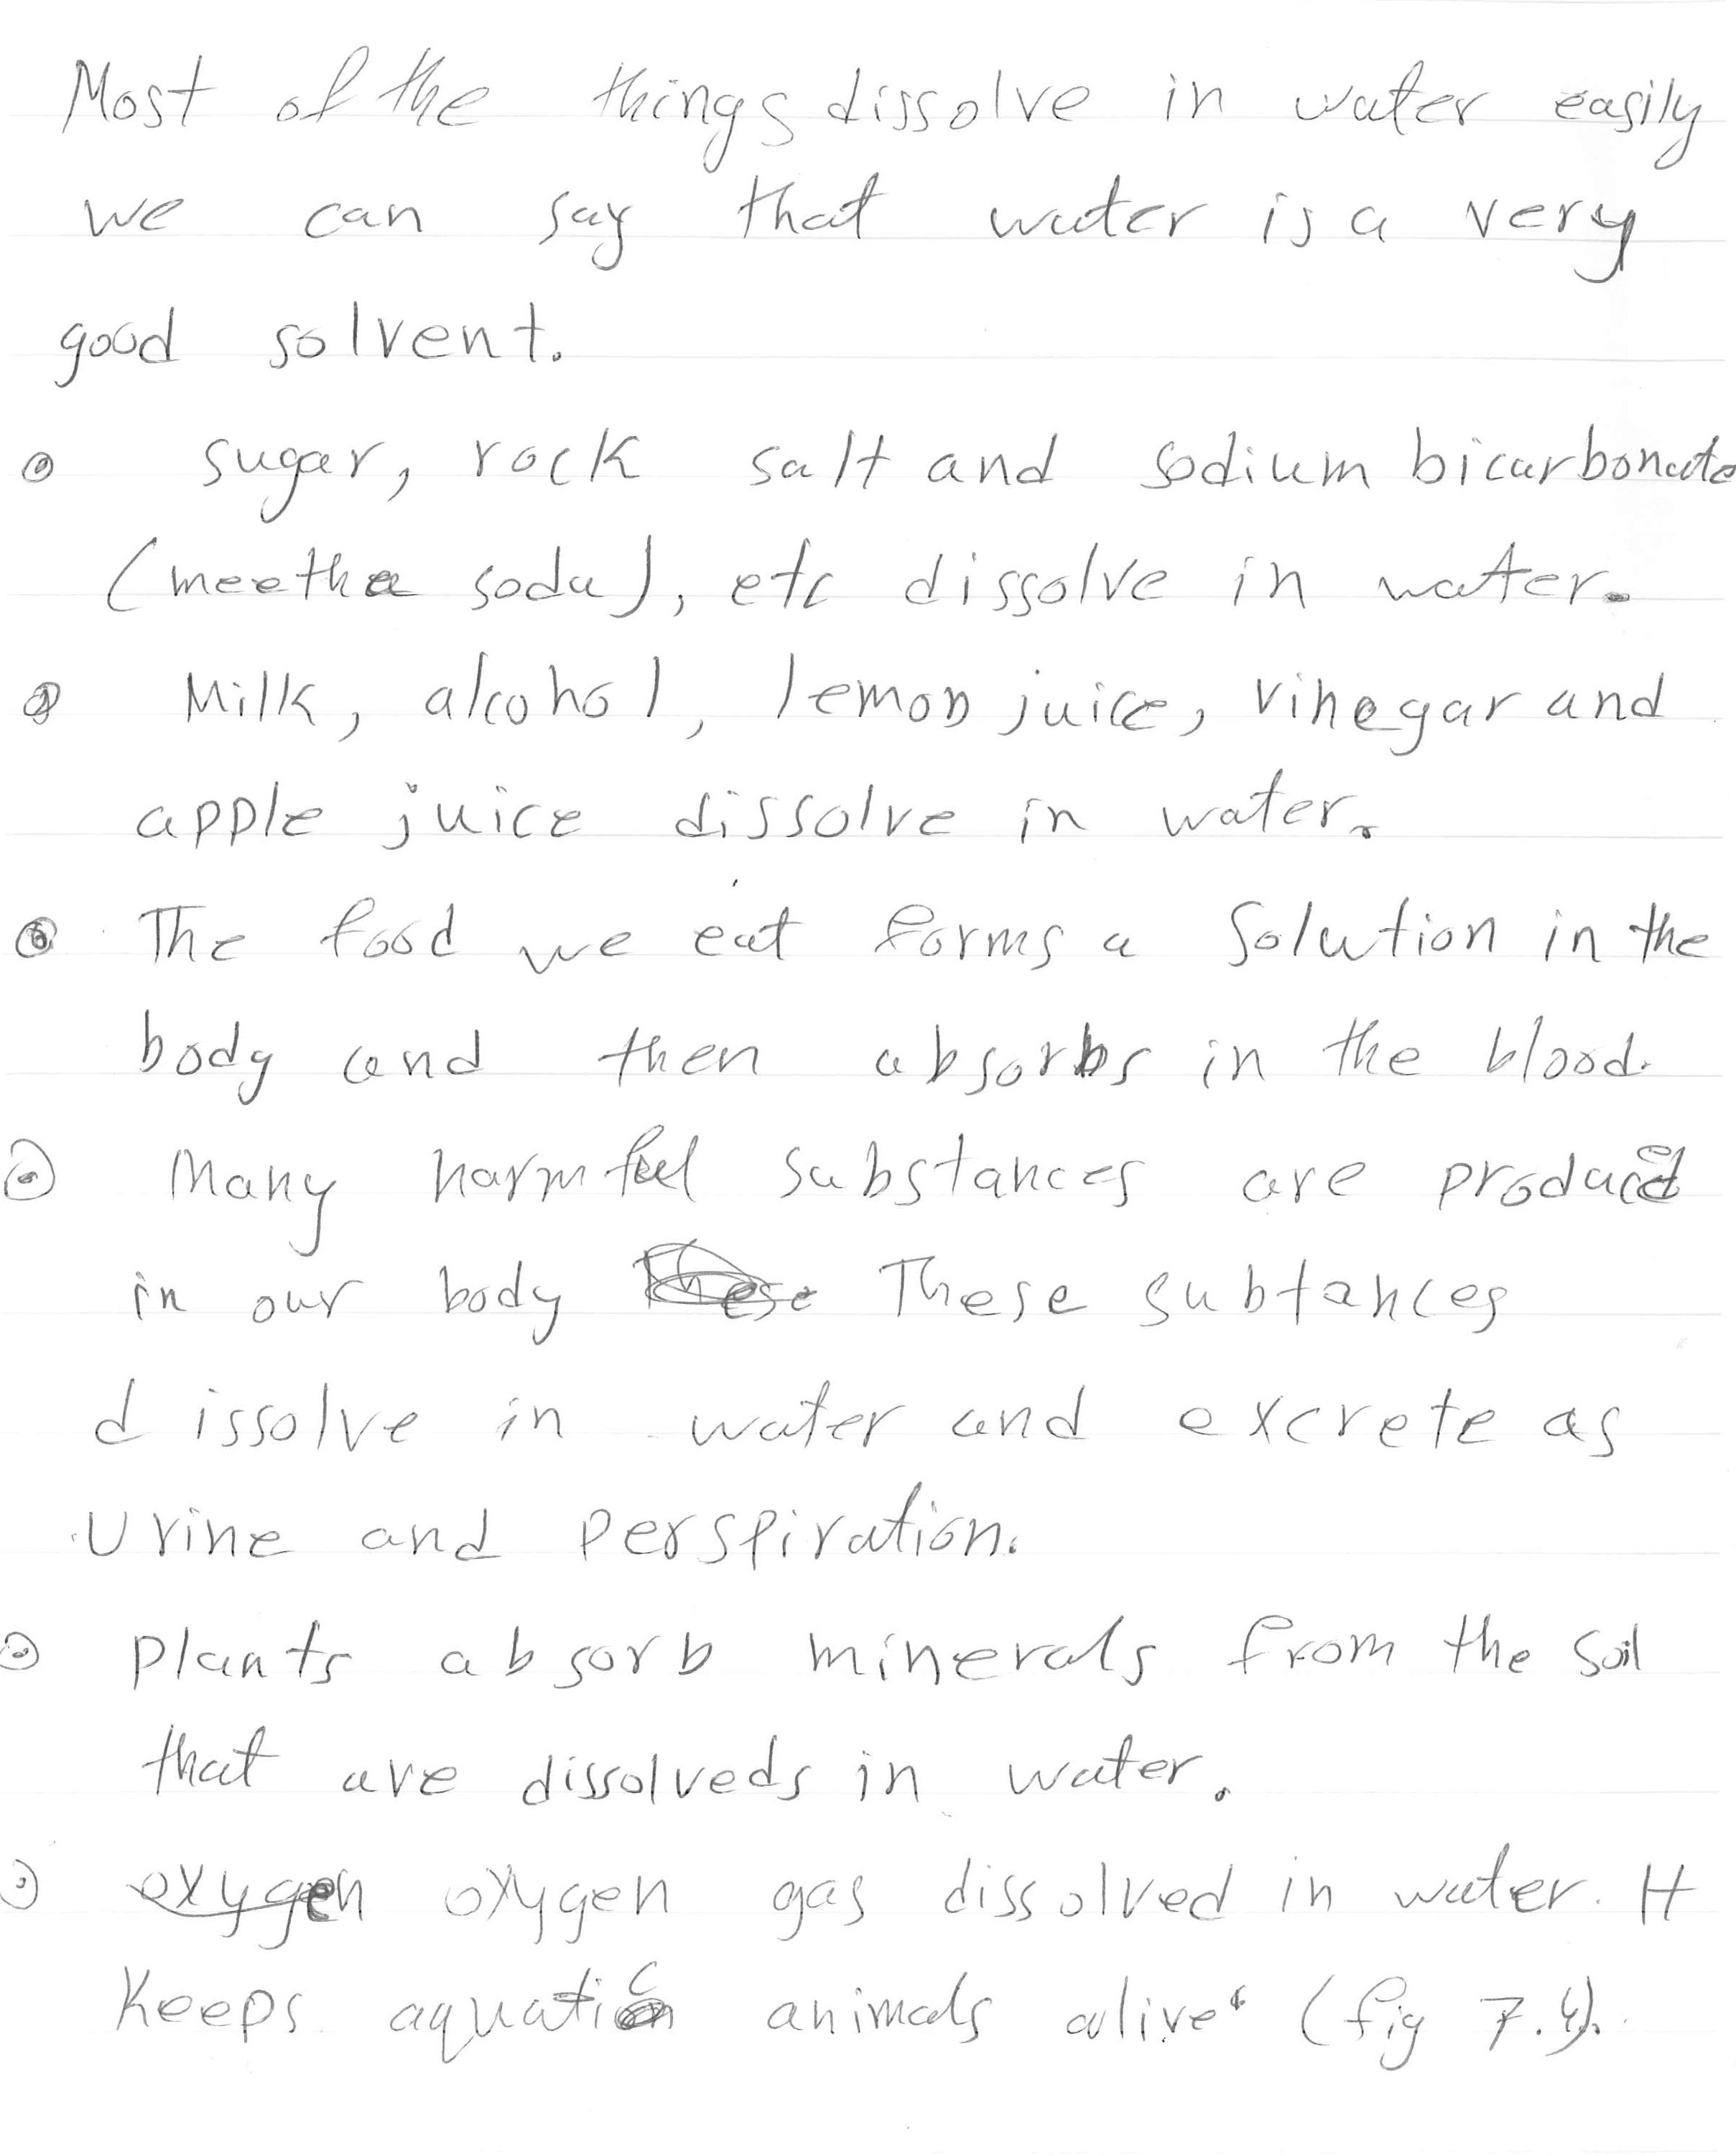 Most of the things dissolve in water easily
we can say that water is a very
good solvent.
sugar, rock salt and sodium bicarbonate
(meetha soda), etc dissolve in water.
Milk, alcohol, lemon juice, vinegar and
apple juice dissolve in water.
The food we eat forms a Solution in the
body and then absorbs in the blood.
Many harmful substances are produced
in our body These subtances
dissolve in water and excrete as
Urine and perspiration.
plants absorb minerals from the soil
that are dissolveds in water.
oxygen oxygen gas dissolved in water. It
Keeps aquatic animals alive. (fig 7.4).